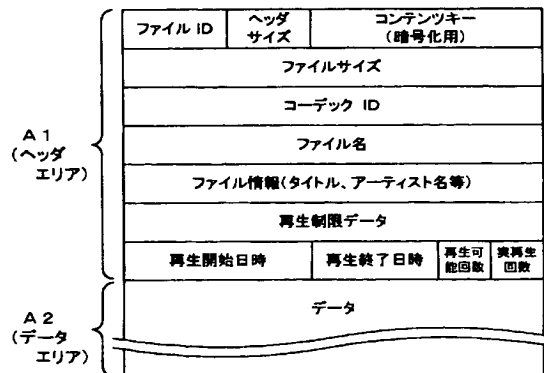 ファイル ID
ヘッダ
サイズ
コンテンツキー
(暗号化用)
ファイルサイズ
コーデック ID
ファイル名
ファイル情報(タイトル、アーティスト名等)
再生制限データ
再生開始日時
再生終了日時
再生可
能回数
実再生
回数
A1
(ヘッダ
エリア)
データ
A2
(データ
エリア)